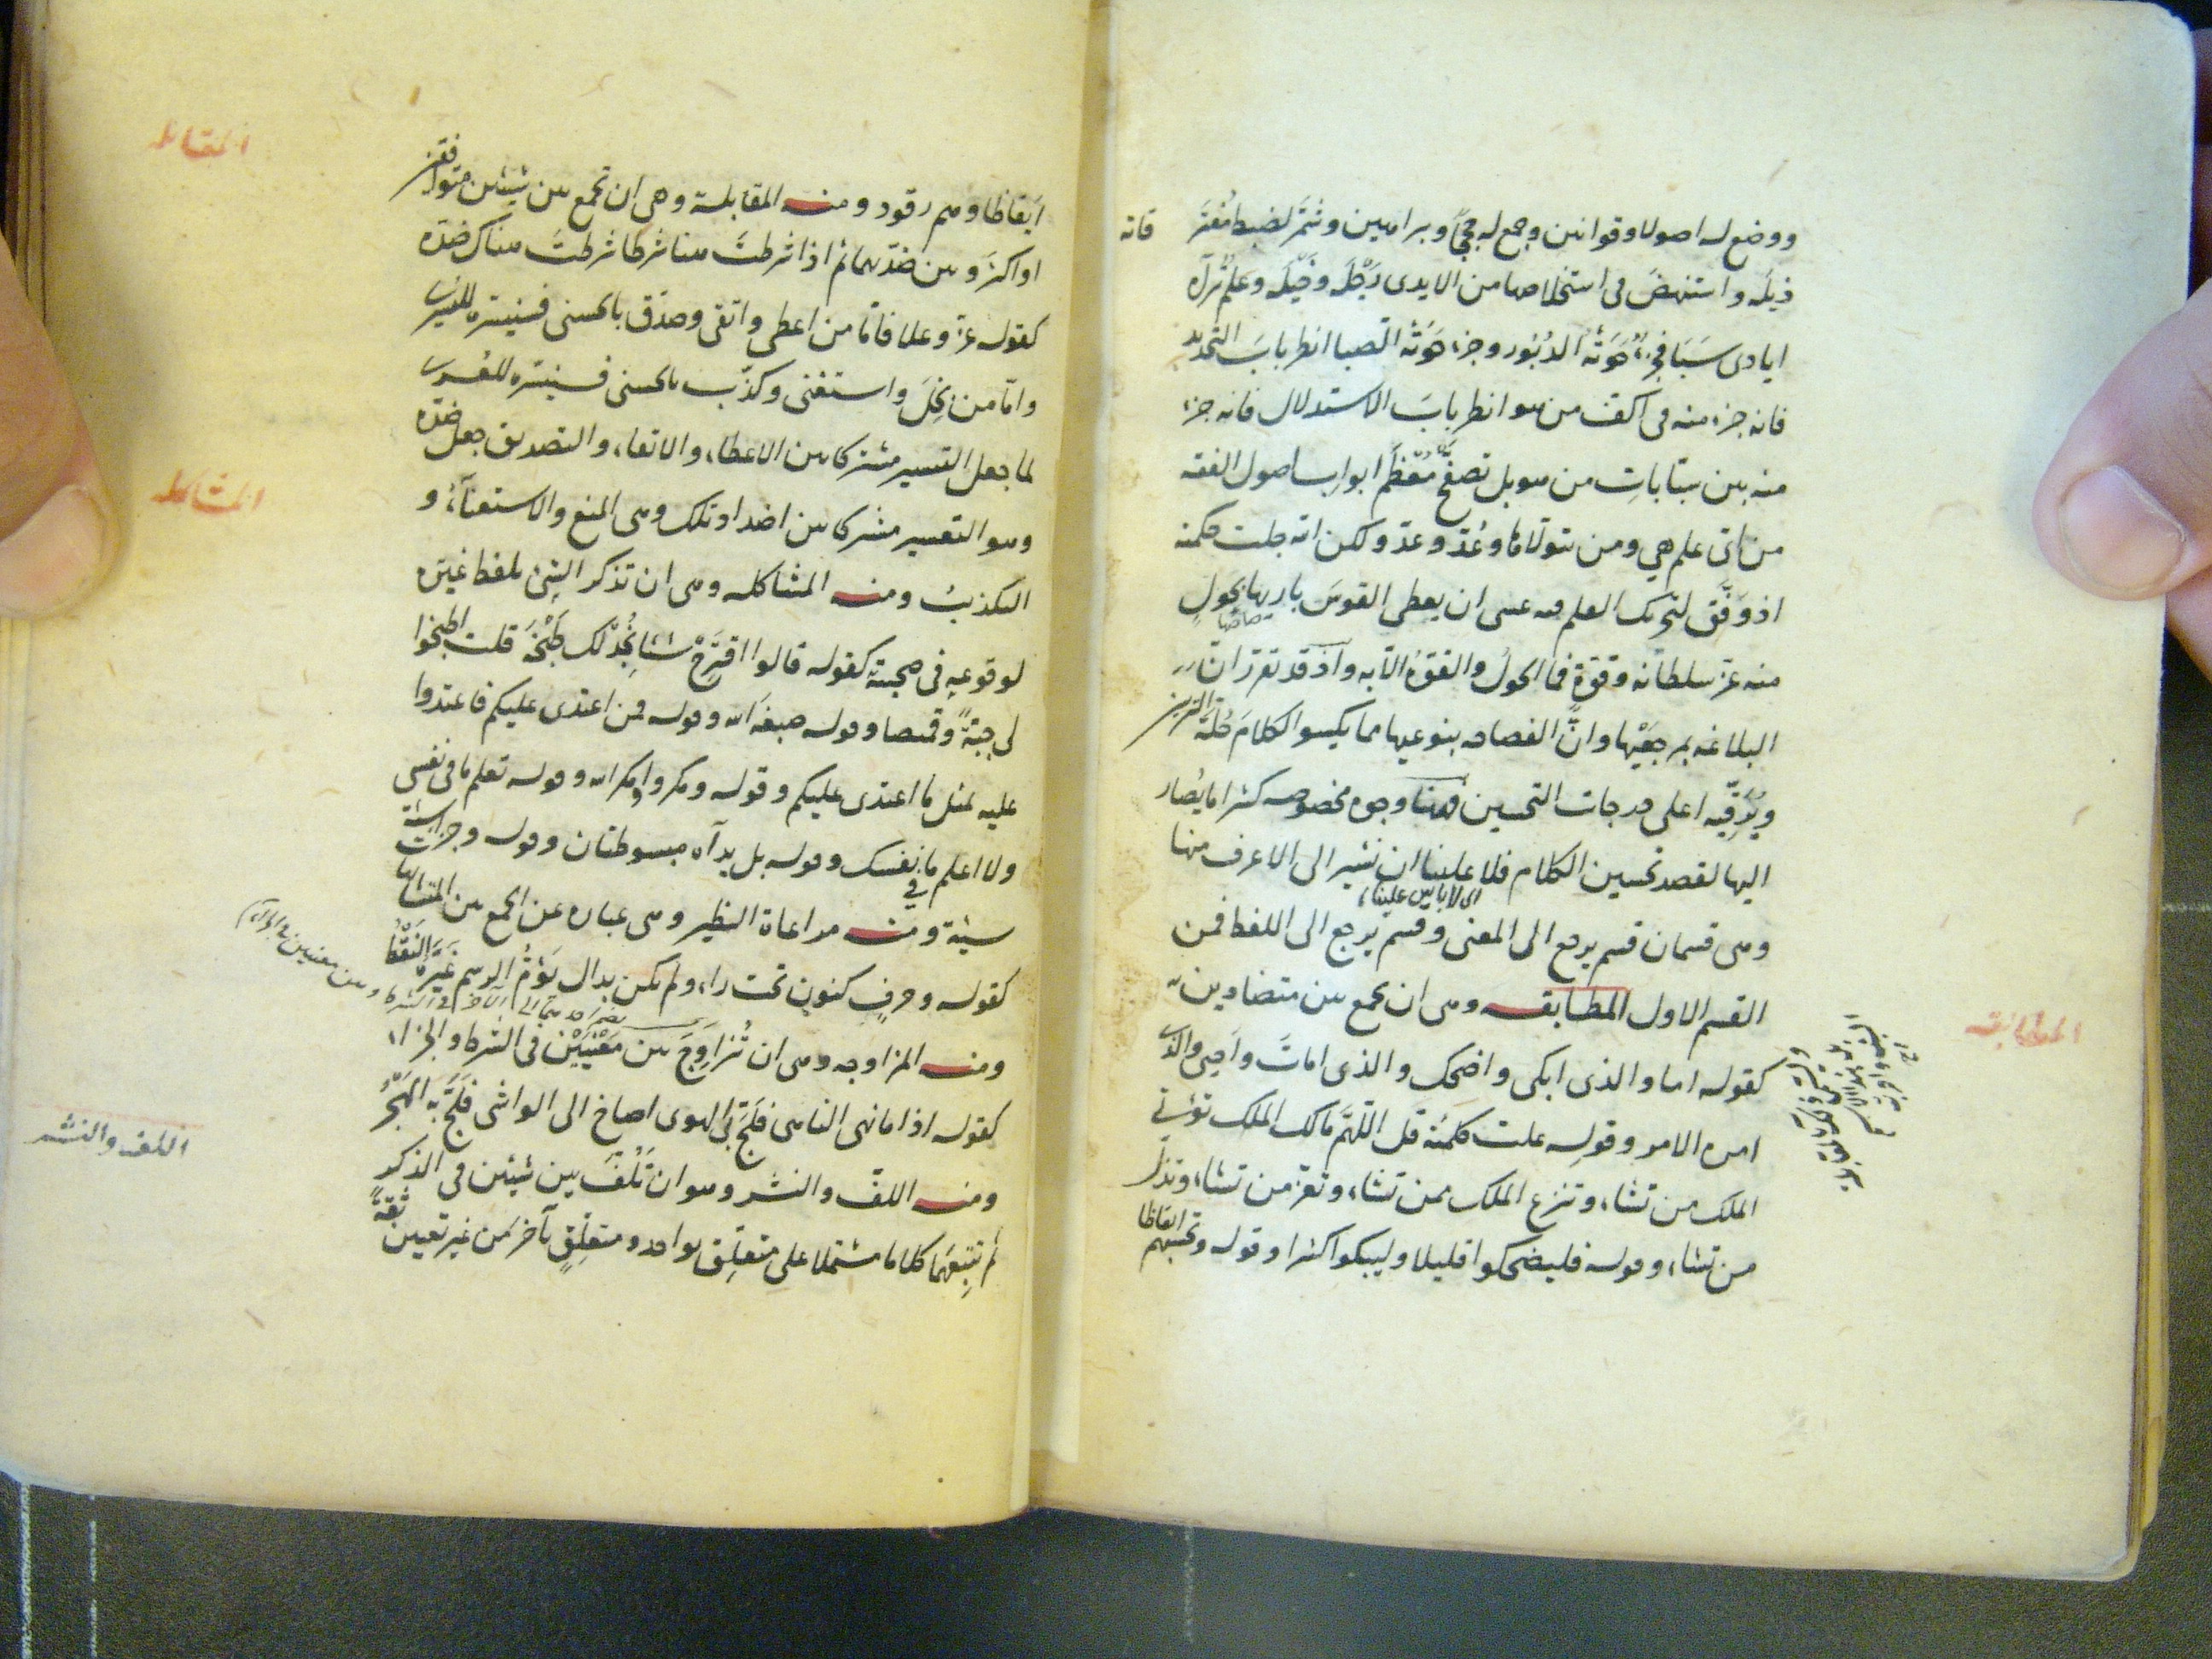 ووضع له اصولا وقوانين وجمع له حججا وبراهين وشمر لضبط متفر قاته
ذيله واستنهض فى استخلاصها من الايدى رجله وخيله وعلم تراه
ايادى سبا فجزء حوته الدبور وجزء حوته الصبا انظر باب التحديد
فانه جزء منه فى اكف من هو انظر باب الاستدلال فانه جزء
منه بين يتابات من هو بل تصفح معظم ابواب اصول الفقه
من اى علم هي ومن يتولاها وعد وعد ولكن الله جلت حكمته
اذ وفق لتحريك القلم فيه عسى ان يعطى القوس باريها بحول
منه عز سلطانه وقوة فما الحول والقوة الا به واذ قد تقرر ان
البلاغه بمرجعيها وان الفصاحه بنوعيها مما يكسو الكلام حلة التزيين
ويرقيه اعلى درجات التحسين فههنا وجوه مخصوصه كثيرا ما يصار
اليها لقصد تحسين الكلام فلا علينا ان نشير الى الاعرف منها
اى لا باس علينا
وهى قسمان قسم يرجع الى المعنى وقسم يرجع الى اللفظ فمن
القسم الاول المطابقه وهى ان يجمع بين متضادين
المطابقه
كقوله اما والذى ابكى واضحك والذى امات واحيى والذى
امره الامر وقوله علت كلمته قل اللهم مالك الملك تؤتى
الملك من تشاء وتنزع الملك ممن تشاء وتعز من تشاء وتذل
من تشاء وقوله فليضحكوا قليلا وليبكوا كثيرا وقوله وتحسبهم ايقاظا
ايقاظا وهم رقود ومنه المقابلة وهى ان تجمع بين شيئين متوافقين
المقابله
او اكثر وبين ضديهما ثم اذا شرطت هنا شرطا شرطت هناك ضده
كقوله عز وعلا فاما من اعطى واتقى وصدق بالحسنى فسنيسره لليسرى
واما من بخل واستغنى وكذب بالحسنى فسنيسره للعسرى
لما جعل التيسير مشتركا بين الاعطاء والاتقاء والتصديق جعل ضده
وهو التعسير مشتركا بين اضداد تلك وهى المنع والاستغناء و
المشاكله
التكذيب ومنه المشاكله وهى ان تذكر الشئ بلفظ غيره
لوقوعه فى صحبته كقوله قالوا اقترح شيئا نجد لك طبخه قلت اطبخوا
لى جبة وقميصا وقوله صبغة الله وقوله فمن اعتدى عليكم فاعتدوا
عليه بمثل ما اعتدى عليكم وقوله ومكروا ومكر الله وقوله تعلم ما فى نفسى
ولا اعلم ما فى نفسك وقوله بل يداه مبسوطتان وقوله وجزاء سيئة
سيئة ومنه مراعاة النظير وهى عباره عن الجمع بين المتشابهات
كقوله وحرف كنون تحت راء ولم يكن بدال يؤم الرسم غيره النقط
ومنه المزاوجه وهى ان تزاوج بين معنيين فى الشرط والجزاء
كقوله اذا ما نهى الناهى فلج بى الهوى اصاخ الى الواشى فلج به الهجر
ومنه اللف والنشر وهو ان تلف بين شيئين فى الذكر
اللف والنشر
ثم تتبعهما كلاما مشتملا على متعلق بواحد ومتعلق بآخر من غير تعيين ثقة